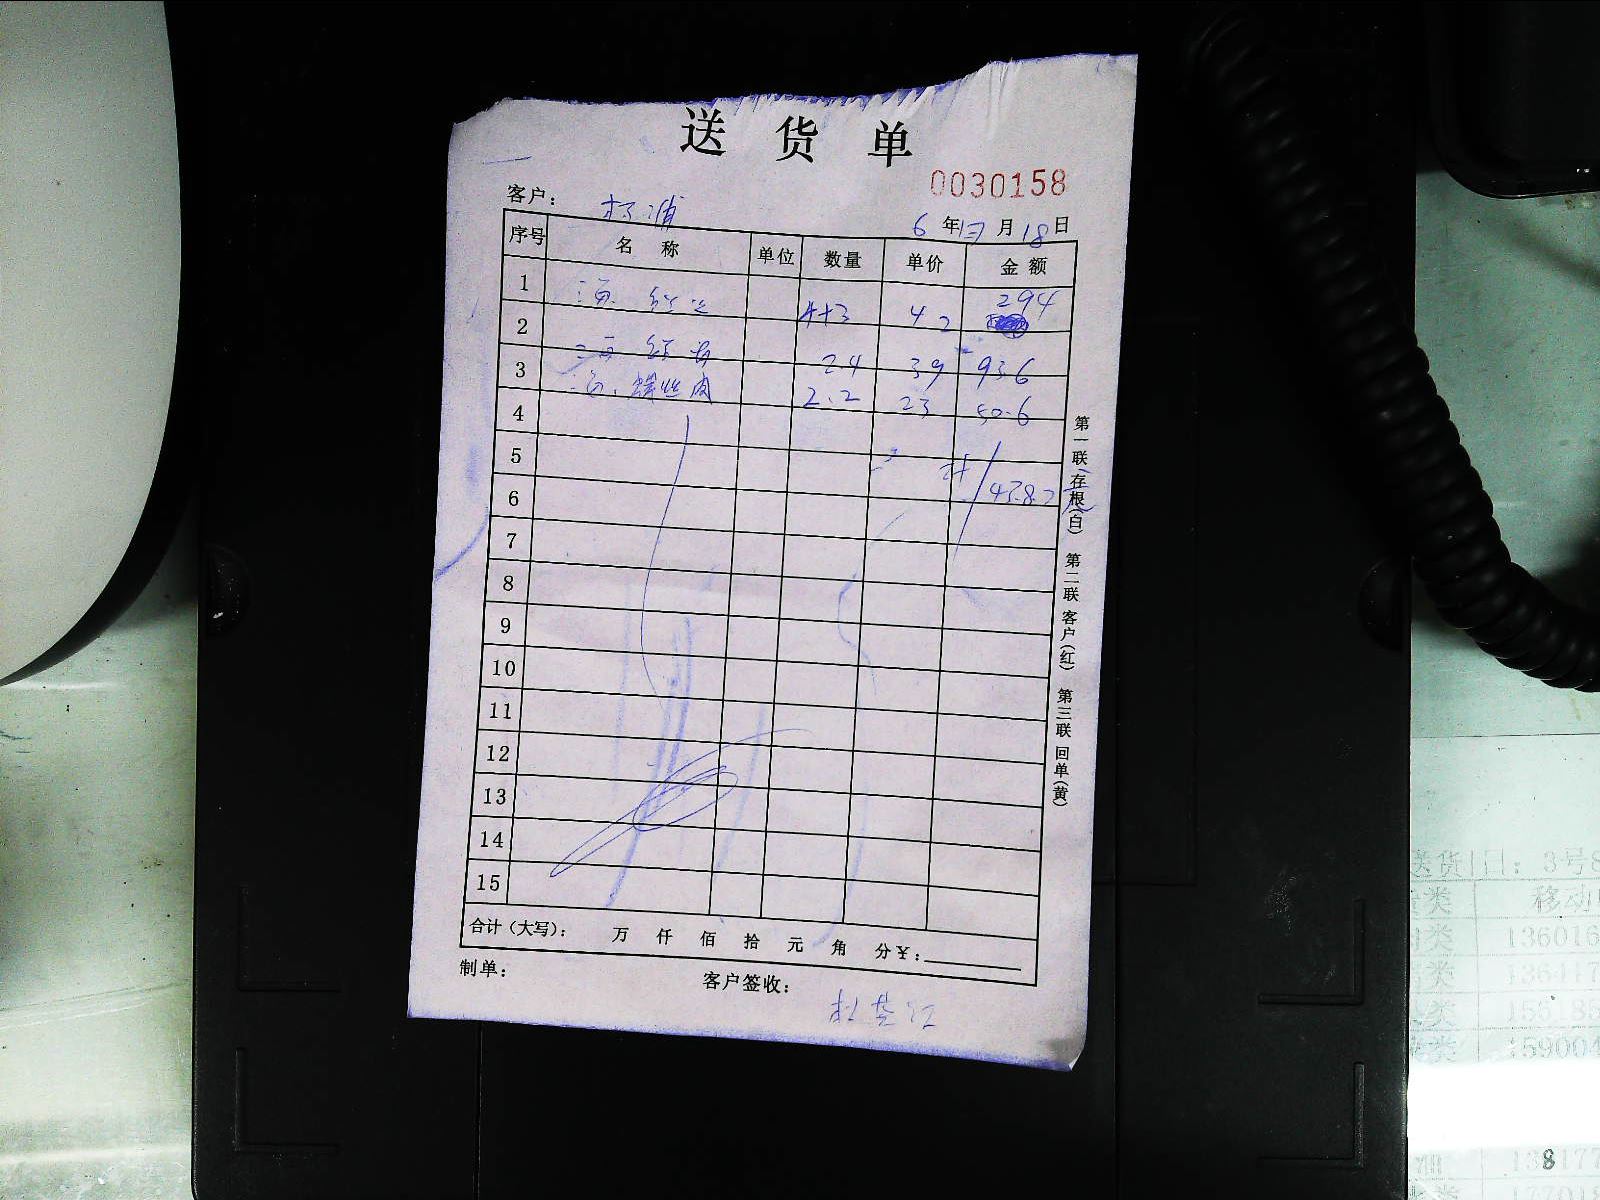 送货单
0030158
客户： 杨浦
6 年 12 月 18 日
序号 名称 单位 数量 单价 金额
1 4+3 42 294
2 2.4 39 93.6
3 螺丝肉 2.2 23 50.6
4
5
计 438.2元
6
7
8
9
10
11
12
13
14
15
合计（大写）： 万 仟 佰 拾 元 角 分￥：
制单： 客户签收：
第一联 存根（白） 第二联 客户（红） 第三联 回单（黄）
送货日：3号8
移动
136016
136417
15900